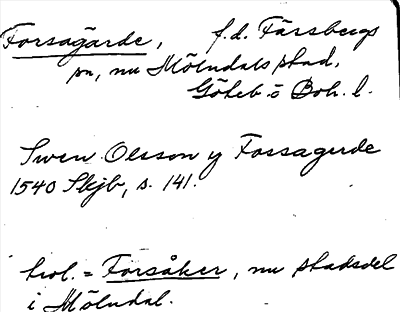 Forsagärde, f.d. Färsbergs
sn, nu Mölndals stad,
Göteb. o Boh. l.
Swen Olsson y Fossagerde
1540 Skjb, s. 141.
trol. = Forsåker, nu stadsdel
i Mölndal.